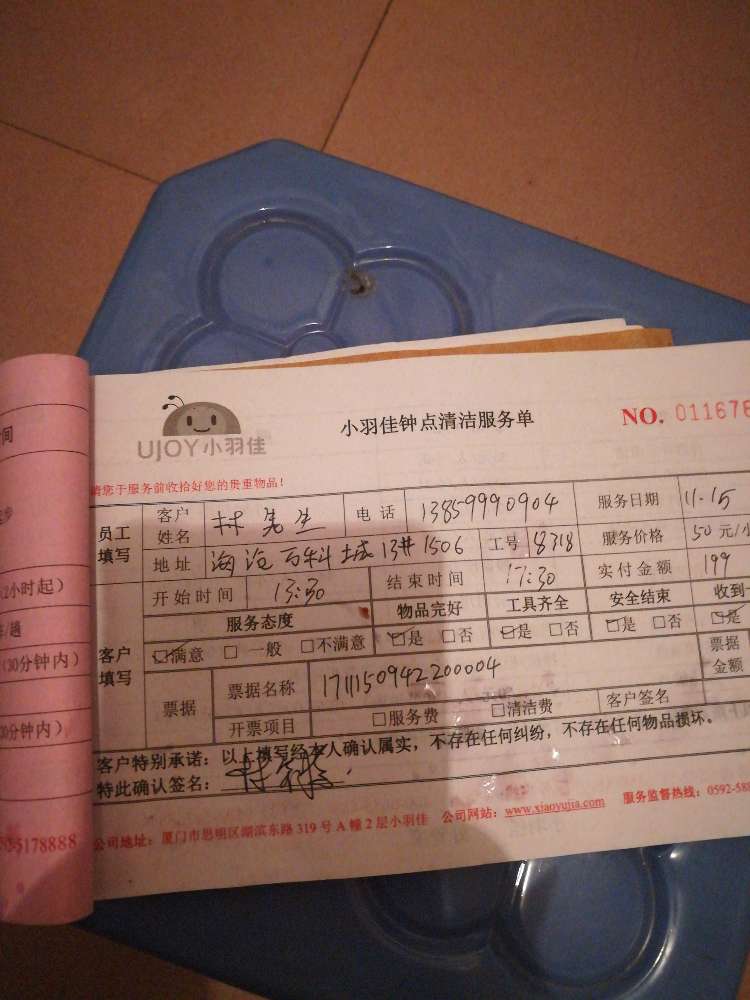 UJOY小羽佳
小羽佳钟点清洁服务单
NO. 011678
请您于服务前收拾好您的贵重物品！
员工填写 客户姓名 林先生 电话 13859990904 服务日期 11.15
地址 海沧百科城13#1506 工号 8318 服务价格 50元/小
开始时间 13:30 结束时间 17:30 实付金额 199
客户填写 服务态度 物品完好 工具齐全 安全结束 收到
☑满意 □ 一般 □不满意 ☑是 □否 ☑是 □否 ☑是 □否 ☑是
票据 票据名称 1711150942200004 票据金额
开票项目 □服务费 □清洁费 客户签名
客户特别承诺：以上填写经本人确认属实，不存在任何纠纷，不存在任何物品损坏。
特此确认签名：
公司地址：厦门市思明区湖滨东路319号A幢2层小羽佳 公司网站：www.xiaoyujia.com 服务监督热线：0592-588
间
2小时起）
/趟
（30分钟内）
30分钟内）
5178888